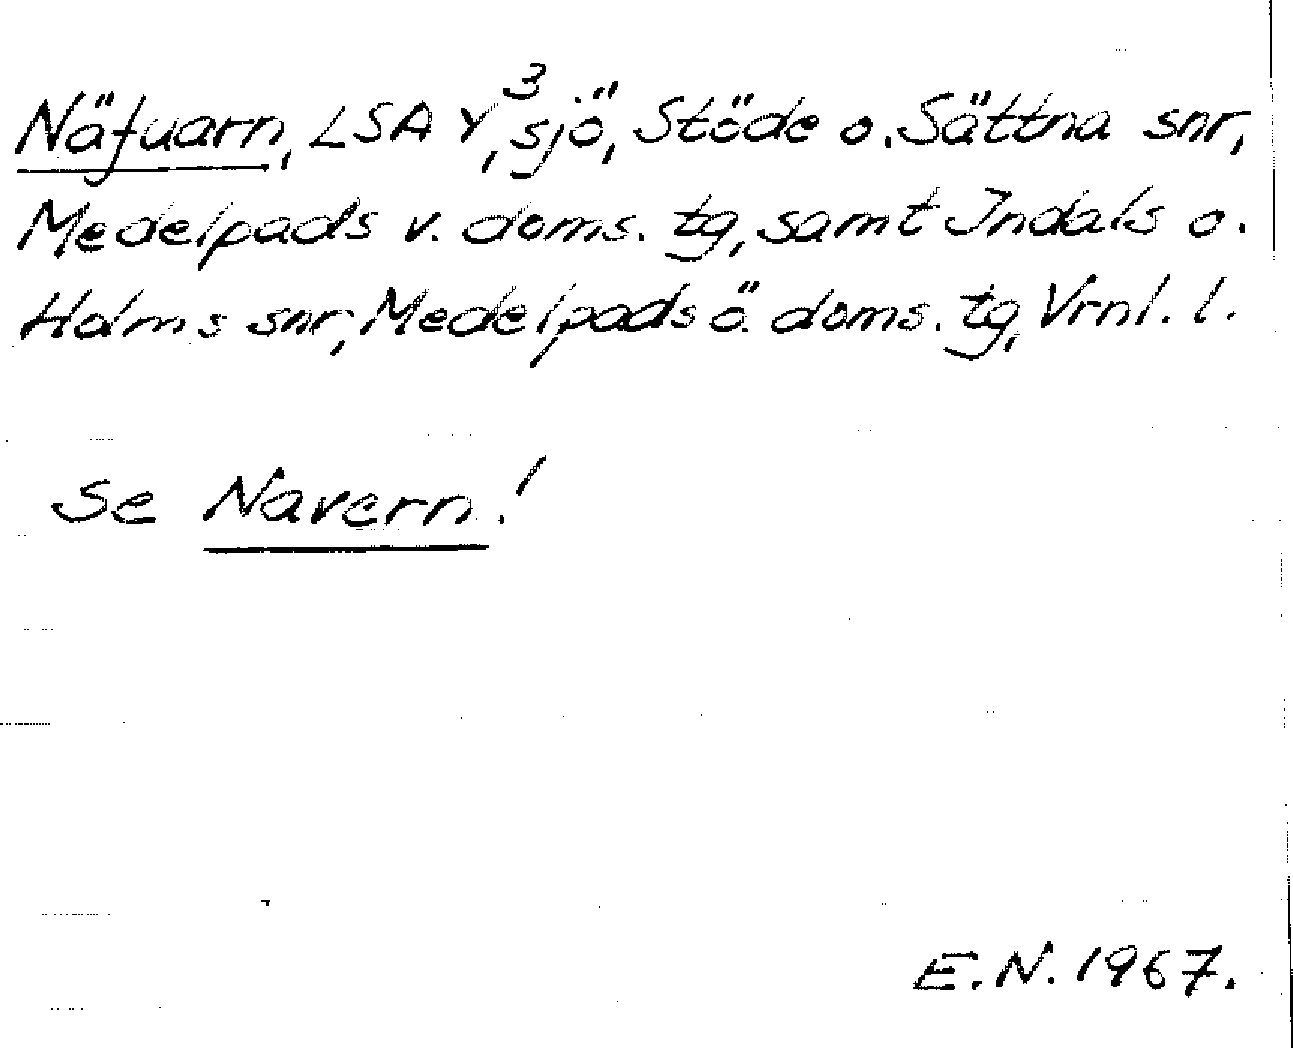 Näfuarn, LSA Y³, sjö, Stöde o. Sättna snr,
Medelpads v. doms. tg, samt Indals o.
Holms snr, Medelpads ö. doms. tg, Vrnl. l.
se Navern!
E.N. 1967.